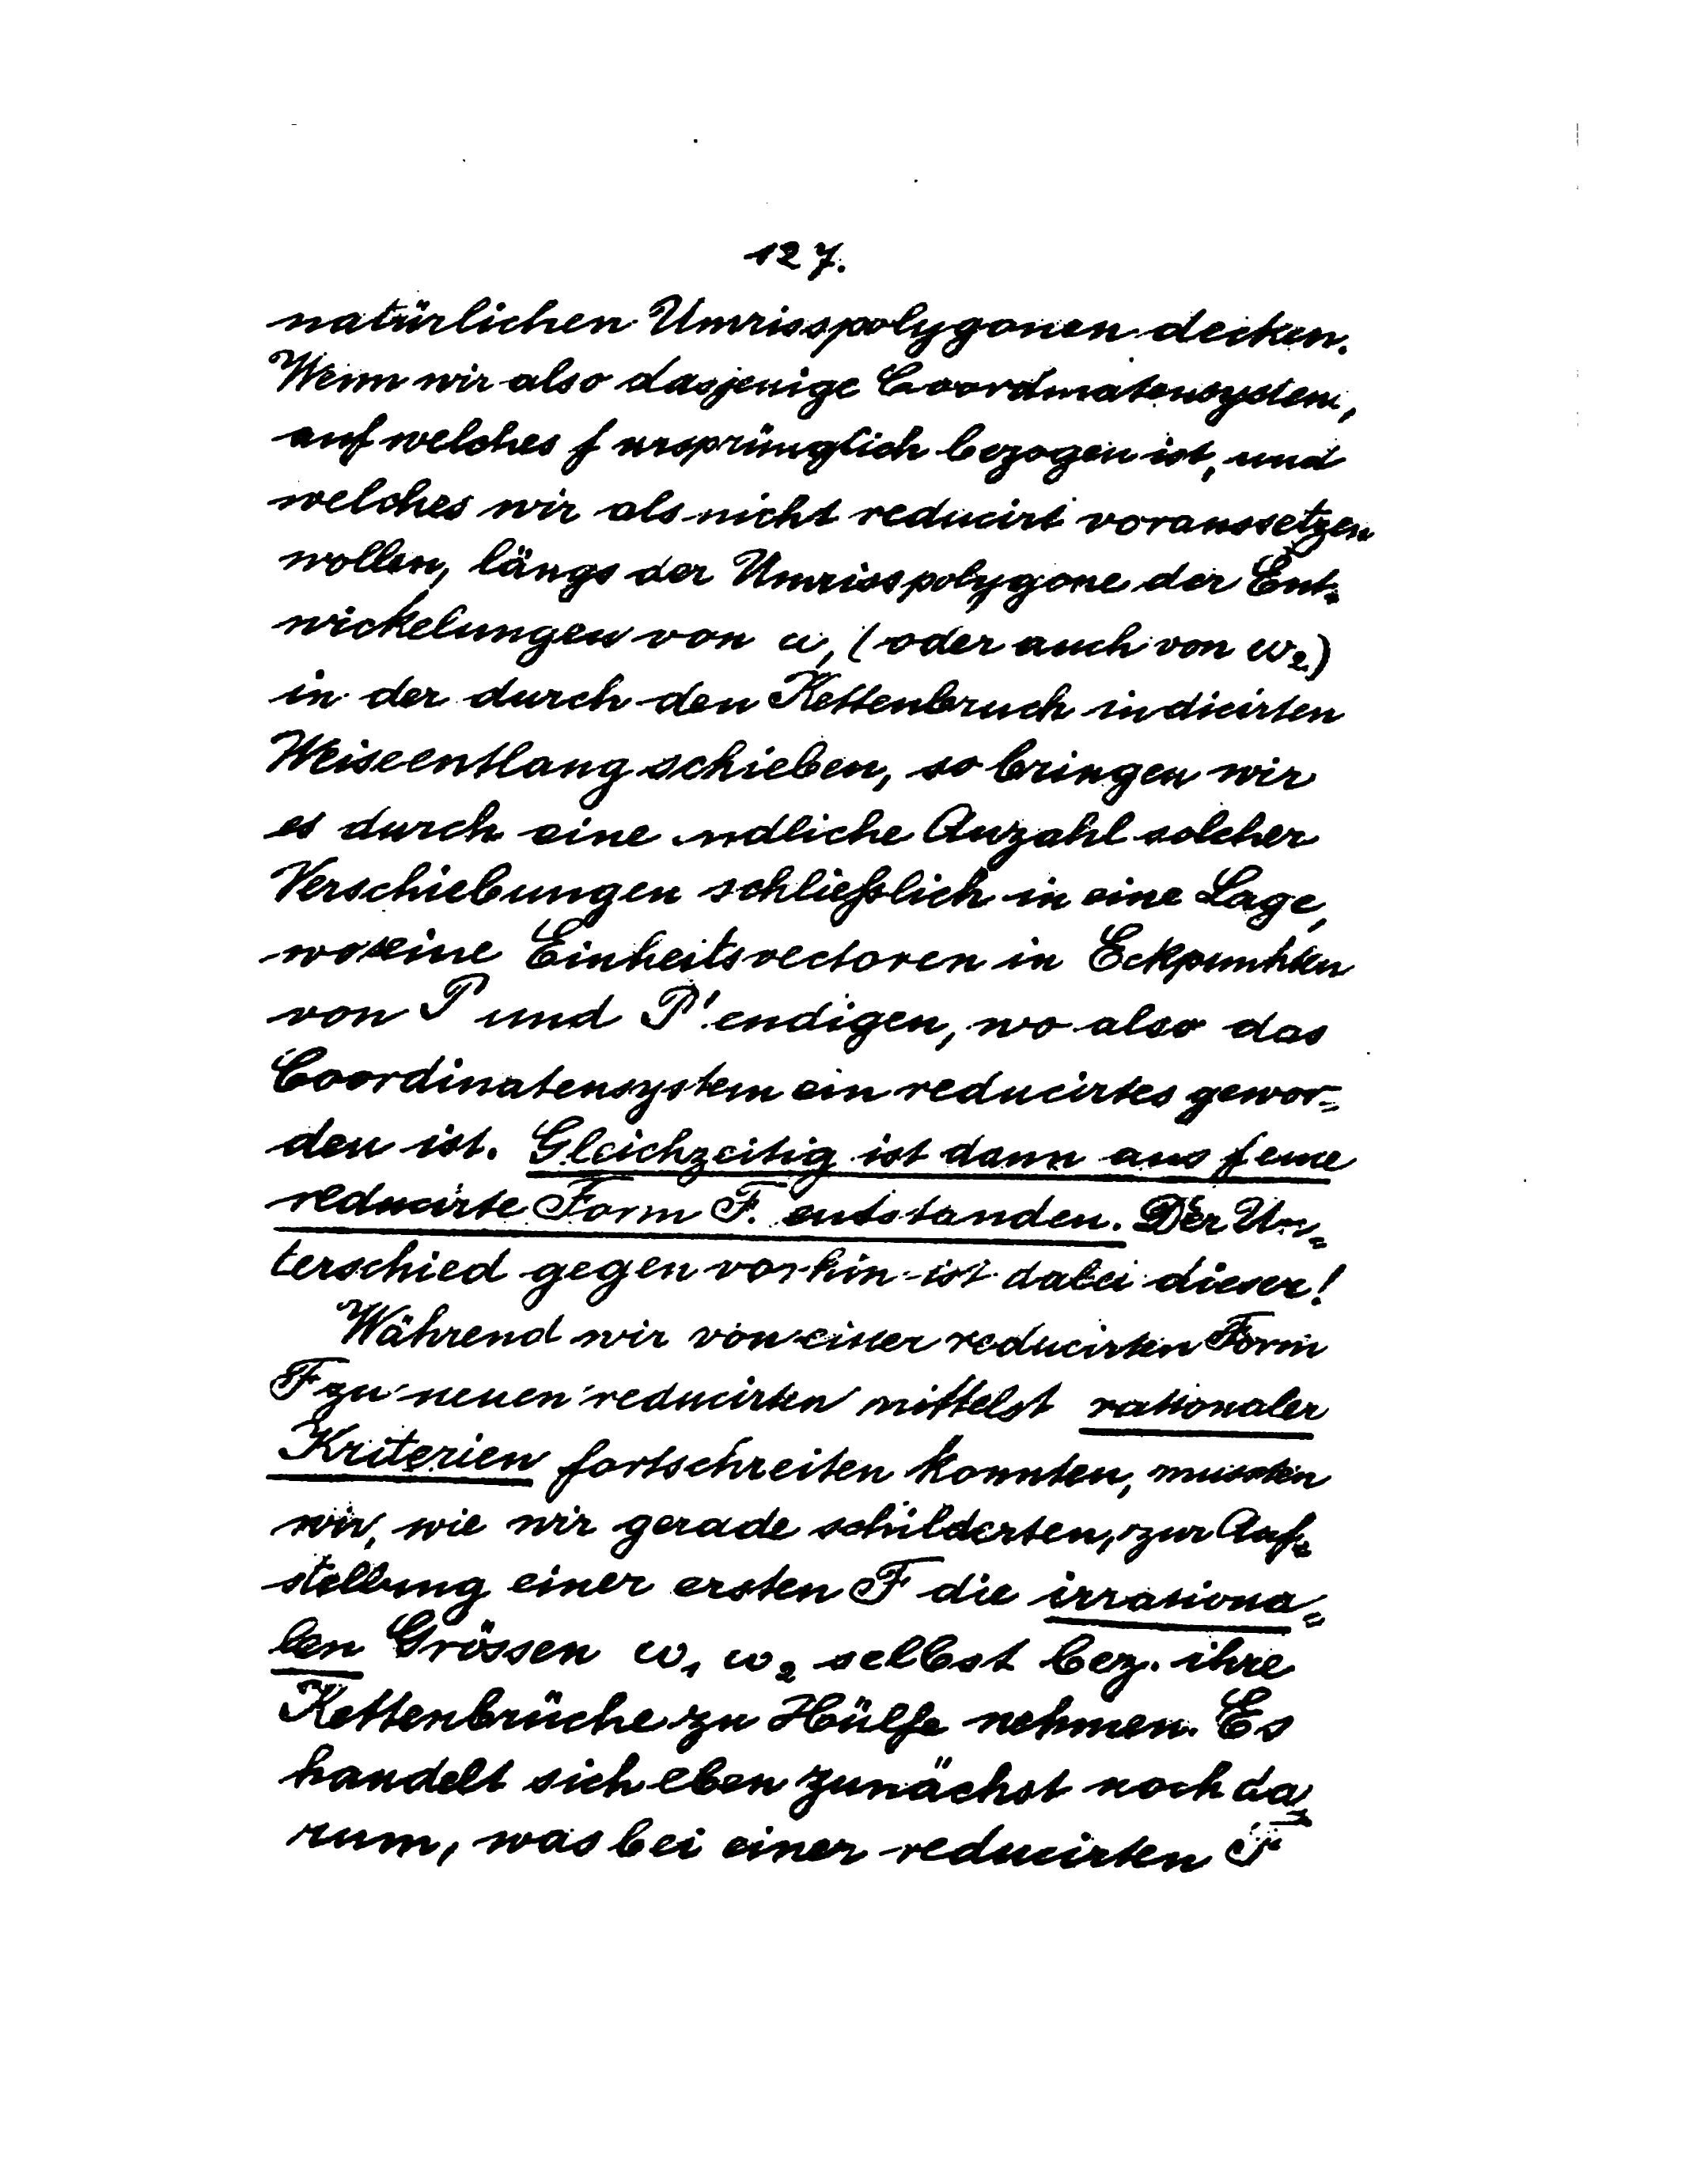 127.
natürlichen Umrisspolygonen decken.
Wenn wir also dasjenige Coordinatensystem,
auf welches f ursprünglich bezogen ist, und
welches wir als nicht reducirt voraussetzen
wollen, längs der Umrisspolygone der Ent-
wickelungen von ω₁ (oder auch von ω₂)
in der durch den Kettenbruch indicirten
Weise entlang schieben, so bringen wir
es durch eine endliche Anzahl solcher
Verschiebungen schließlich in eine Lage,
wo seine Einheitsvectoren in Eckpunkten
von P und P' endigen, wo also das
Coordinatensystem ein reducirtes gewor-
den ist. Gleichzeitig ist dann aus f eine
reducirte Form F. entstanden. Der Un-
terschied gegen vorhin ist dabei dieser!
Während wir von einer reducirten Form
F zu neuen reducirten mittelst rationaler
Kriterien fortschreiten konnten, mussten
wir, wie wir gerade schilderten, zur Auf-
stellung einer ersten F die irrationa-
len Grössen ω₁ ω₂ selbst bez. ihre
Kettenbrüche zu Hülfe nehmen. Es
handelt sich eben zunächst noch da-
rum, was bei einer reducirten F